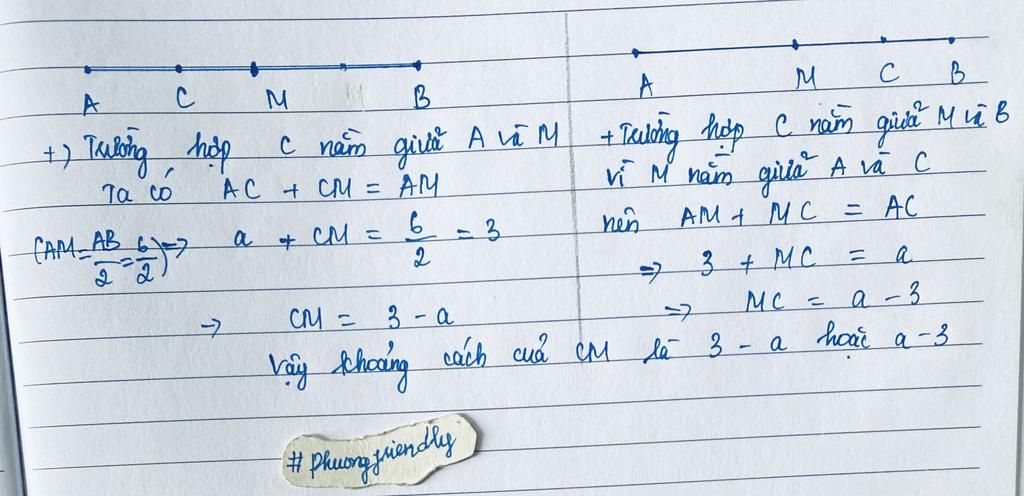 A C M B
+) Trường hợp C nằm giữa A và M
Ta có AC + CM = AM
(AM = AB/2 = 6/2) => a + CM = 6/2 = 3
→ CM = 3 - a
A M C B
+ Trường hợp C nằm giữa M và B
vì M nằm giữa A và C
nên AM + MC = AC
=> 3 + MC = a
=> MC = a - 3
Vậy khoảng cách của CM là 3 - a hoặc a - 3
# phuongfriendly